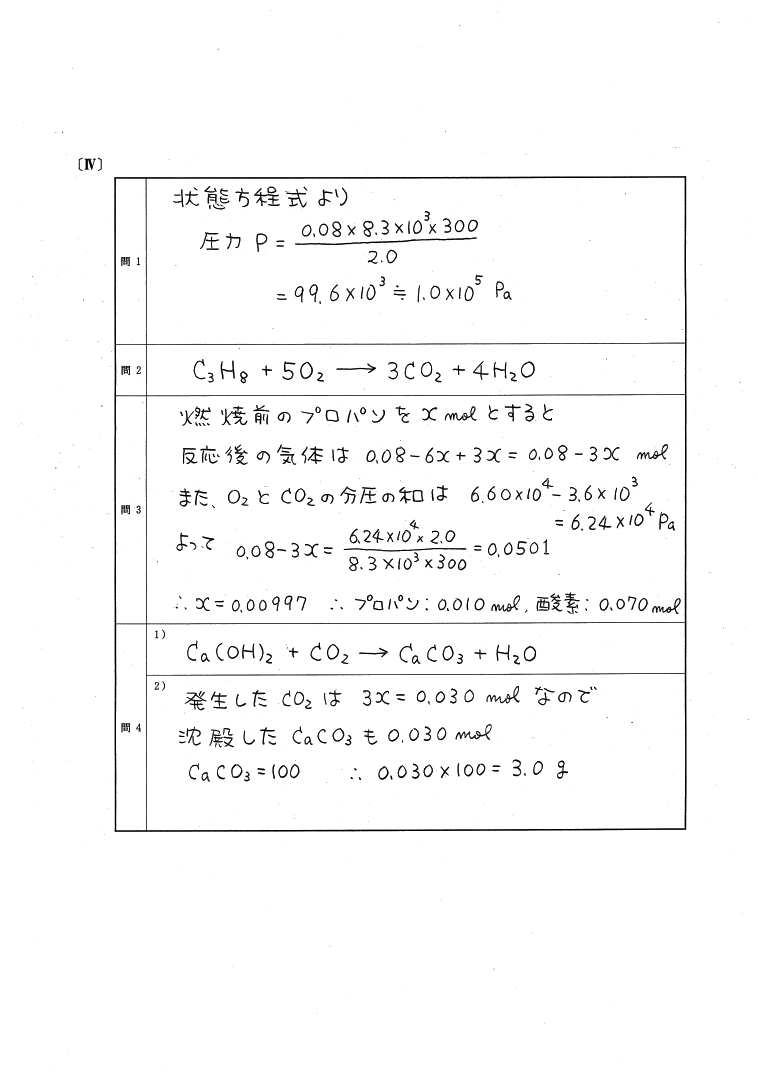 〔Ⅳ〕
問1
状態方程式より
圧力 P = 0.08 × 8.3×10³× 300 / 2.0
= 99.6×10³ ≒ 1.0×10⁵ Pa
問2
C₃H₈ + 5O₂ → 3CO₂ + 4H₂O
問3
燃焼前のプロパンを x mol とすると
反応後の気体は 0.08 - 6x + 3x = 0.08 - 3x mol
また、O₂ と CO₂ の分圧の和は 6.60×10⁴ - 3.6×10³
= 6.24×10⁴ Pa
よって 0.08 - 3x = 6.24×10⁴× 2.0 / 8.3×10³×300 = 0.0501
∴ x = 0.00997 ∴ プロパン : 0.010 mol, 酸素 : 0.070 mol
問4
1)
Ca(OH)₂ + CO₂ → CaCO₃ + H₂O
2)
発生した CO₂ は 3x = 0.030 mol なので
沈殿した CaCO₃ も 0.030 mol
CaCO₃ = 100 ∴ 0.030×100 = 3.0 g